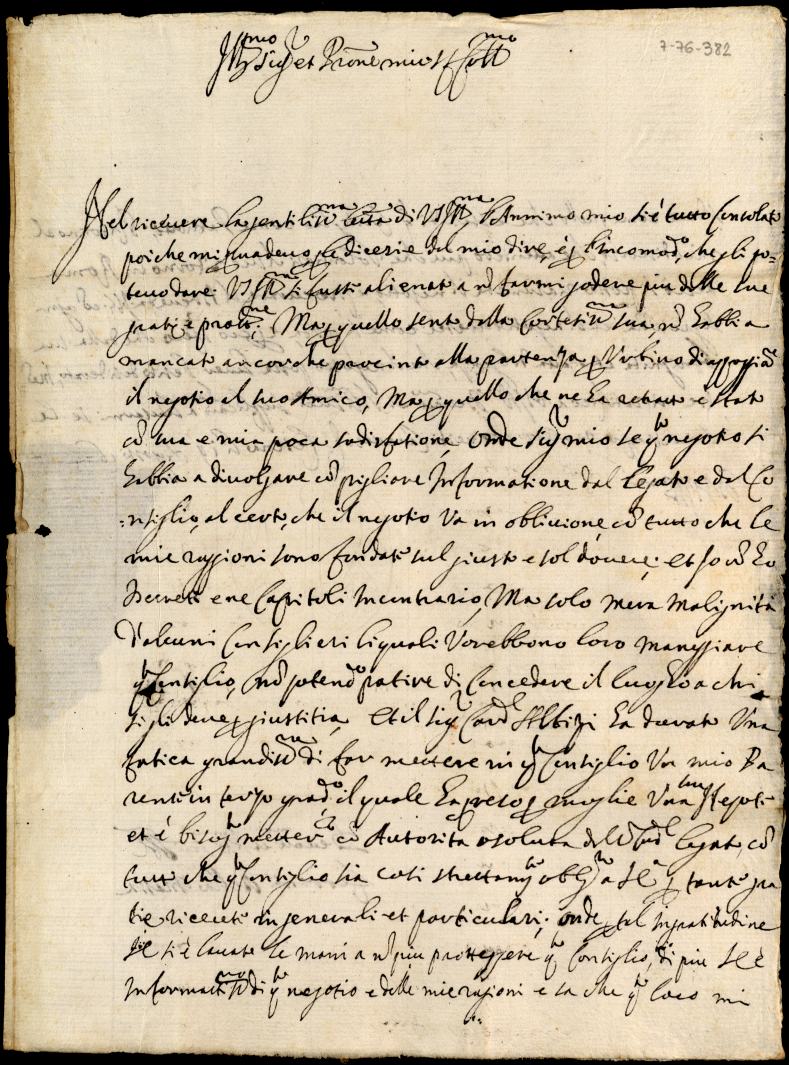 7-76-382
Ill.mo Sig.r et Pron̄e mio
Nel ricevere la gentiliss.ma lett.a di V.S. Ill.ma l'Annimo mio si è tutto Consolato
poiche mi suadevo, le dicerie del mio dire, e l'incomodo, che gli po=
tevo dare. V.S. Ill.ma si fusse alienata a nō farmi godere piu delle sue
gratie e prott.ne. Ma p quello sento dalla Cortesiss.ma sua nō habbia
mancato ancorche procinto alla partenza p Urbino di appoggiar
il negotio al suo Amico, Ma p quello che ne ha retratto è stato
cō sua e mia poca sodisfatione, onde Sig.r mio se q.to negotio si
habbia a divolgare cō pigliare Informatione dal legato e dal Co
=nsiglio, al certo, che il negotio va in oblivione, cō tutto che le
mie raggioni sono fondate sul giusto e sol dovere; et so nō ho
Decreti e ne Capitoli In contrario, Ma solo mera malignità
d'alcuni Consiglieri li quali vorebbono loro maneggiare
q.to Consiglio, nō potendo patire di Concedere il luogho a chi
si gli deve p giustitia, et il Sig.r Card.l Albizi ha durato una
fatica grandiss.ma di far mettere in q.to Consiglio un mio Pa
rente in terzo grado, il quale ha preso p moglie una Nepote
et è bisog.to metter cō Autorita asoluta del Card.l legato, cō
tutto che q.to Consiglio sia cosi strettam.te oblig.to a S.E. p tante gra
tie ricevute in generali et particulari; onde p tal Ingratitudine
S.E. si è lavate le mani a nō piu proteggere q.to Consiglio, di piu S.E. è
Informatiss.mo di q.to negotio e delle mie ragioni e sa che q.to loco mi